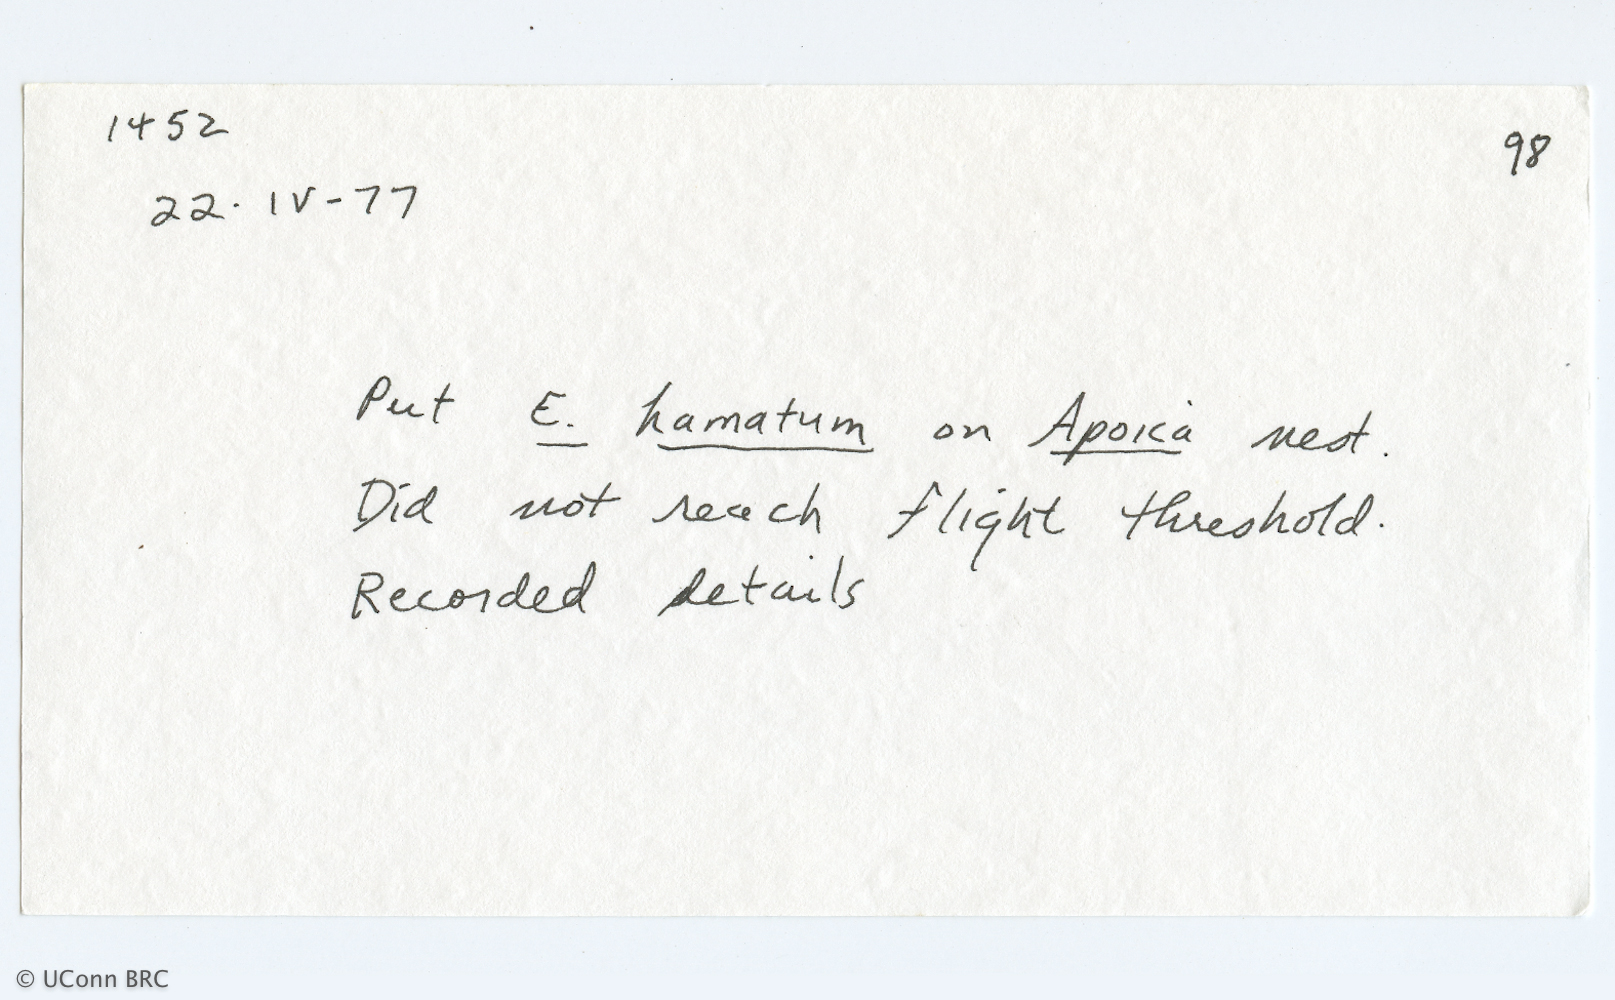 1452
98
22. IV-77
Put E. hamatum on Apoica nest.
Did not reach flight threshold.
Recorded details
© UConn BRC